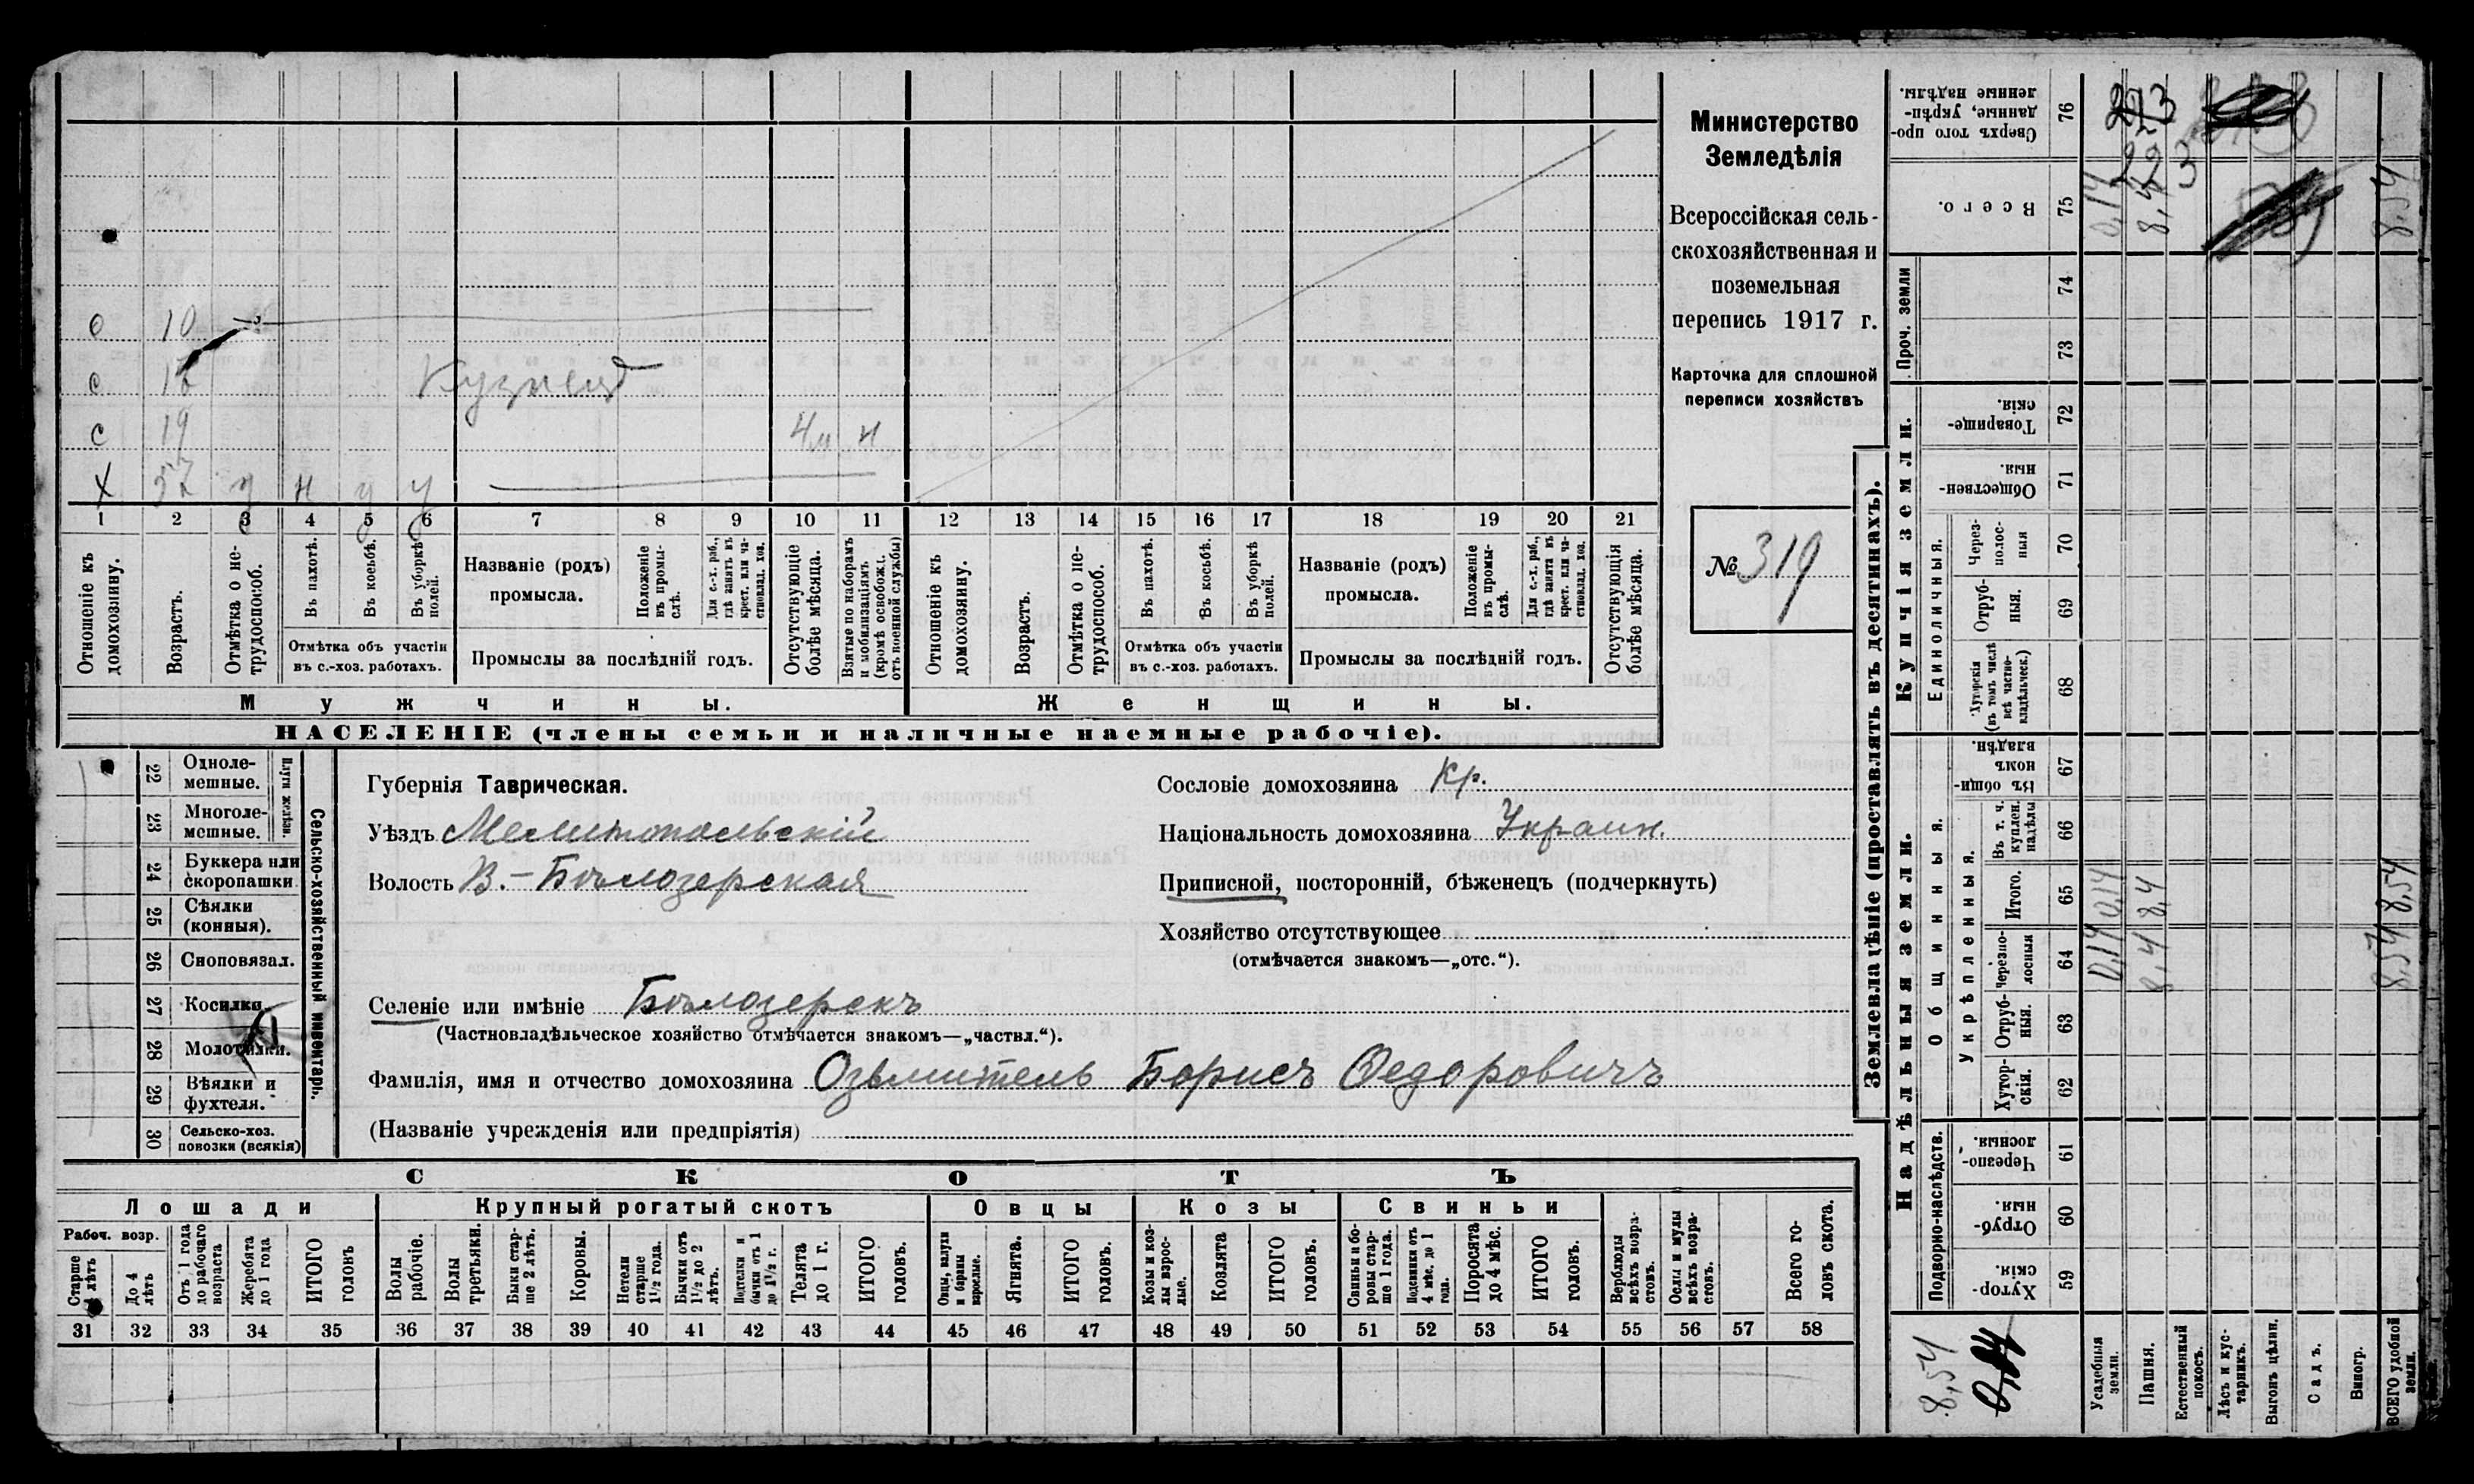 Министерство
Земледѣлія
Всероссійская сель-
скохозяйственная и
поземельная
перепись 1917 г.
Карточка для сплошной
переписи хозяйствъ
№ 319
о 10
с
Кузнец
с 19 4 м н
х 57 у н у у
1 2 3 4 5 6 7 8 9 10 11 12 13 14 15 16 17 18 19 20 21
Отношеніе къ домохозяину.
Возрастъ.
Отмѣтка о не-трудоспособ.
Въ пахотѣ.
Въ косьбѣ.
Въ уборкѣ полей.
Отмѣтка объ участіи
въ с.-хоз. работахъ.
Названіе (родъ)
промысла.
Положеніе въ промы-слѣ.
Для с.-х. раб., гдѣ занятъ въ крест. или ча-стновлад. хоз.
Промыслы за послѣдній годъ.
Отсутствующіе болѣе мѣсяца.
Взятые по наборамъ и мобилизаціямъ (кромѣ освобожд. отъ военной службы)
Отношеніе къ домохозяину.
Возрастъ.
Отмѣтка о не-трудоспособ.
Въ пахотѣ.
Въ косьбѣ.
Въ уборкѣ полей.
Отмѣтка объ участіи
въ с.-хоз. работахъ.
Названіе (родъ)
промысла.
Положеніе въ промы-слѣ.
Для с.-х. раб., гдѣ занята въ крест. или ча-стновлад. хоз.
Промыслы за послѣдній годъ.
Отсутствующія болѣе мѣсяца.
Мужчины.
Женщины.
НАСЕЛЕНІЕ (члены семьи и наличные наемные рабочіе).
22 Однолемешные.
23 Многолемешные.
Плуги желѣзн.
24 Буккера или скоропашки
25 Сѣялки (конныя).
26 Сноповязал.
27 Косилки.
28 Молотилки.
29 Вѣялки и фухтеля.
30 Сельско-хоз. повозки (всякія)
Сельско-хозяйственный инвентарь.
Губернія Таврическая.
Уѣздъ Мелитопольскій
Волость В.-Бѣлозерская
Селеніе или имѣніе Бѣлозерскъ
(Частновладѣльческое хозяйство отмѣчается знакомъ—„частвл.“).
Фамилія, имя и отчество домохозяина Озьмитель Борисъ Ѳедоровичъ
(Названіе учрежденія или предпріятія)
Сословіе домохозяина Кр.
Національность домохозяина Украин.
Приписной, посторонній, бѣженецъ (подчеркнуть)
Хозяйство отсутствующее
(отмѣчается знакомъ—„отс.“).
СКОТЪ
Лошади
Крупный рогатый скотъ
Овцы
Козы
Свиньи
Рабоч. возр.
Старше 4 лѣтъ
До 4 лѣтъ
Отъ 1 года до рабочаго возраста
Жеребята до 1 года
ИТОГО головъ
Волы рабочіе.
Волы третьяки.
Быки стар-ше 2 лѣтъ.
Коровы.
Нетели старше 1½ года.
Бычки отъ 1½ до 2 лѣтъ.
Подтелки и бычки отъ 1 до 1½ г.
Телята до 1 г.
ИТОГО головъ.
Овцы, валухи и бараны взрослые.
Ягнята.
ИТОГО головъ.
Козы и коз-лы взрос-лые.
Козлята
ИТОГО головъ.
Свиньи и бо-ровы стар-ше 1 года.
Подсвинки отъ 4 мѣс. до 1 года.
Поросята до 4 мѣс.
ИТОГО головъ.
Верблюды всѣхъ возра-стовъ.
Ослы и мулы всѣхъ возра-стовъ.
Всего го-ловъ скота.
31 32 33 34 35 36 37 38 39 40 41 42 43 44 45 46 47 48 49 50 51 52 53 54 55 56 57 58
Землевладѣніе (проставлять въ десятинахъ).
Сверхъ того про-данные, укрѣп-ленные надѣлы. 76
Всего. 75 0,14 8,4 8,54
223
Проч. земли
74
73
Купчія земли.
Товарище-скія. 72
Обществен-ныя. 71
Единоличныя.
Через-полос-ныя 70
Отруб-ныя. 69
Хуторскія (въ томъ числѣ всѣ частно-владѣльческ.) 68
Надѣльныя земли.
Въ общи-номъ владѣн. 67
Общинныя.
Укрѣпленныя.
Въ т. ч. куплен. надѣлы 66
Итого. 65 0,14 8,4 8,54
Черезпо-лосныя 64 0,14 8,4 8,54
Отруб-ныя. 63
Хутор-скія. 62
Подворно-наслѣдств.
Черезпо-лосныя. 61
Отруб-ныя. 60
Хутор-скія. 59
8,54
Усадебныя земли.
Пашня.
Естественный покосъ.
Лѣсъ и кус-тарникъ.
Выгонъ цѣлин.
Садъ.
Виногр.
ВСЕГО удобной земли.